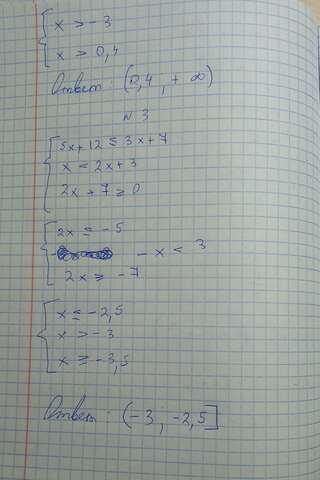 x > -3
x > 0,4
Ответ: (0,4, + ∞)
№ 3
5x + 12 ≤ 3x + 7
x < 2x + 3
2x + 7 ≥ 0
2x ≤ -5
- x < 3
2x ≥ -7
x ≤ -2,5
x > -3
x ≥ -3,5
Ответ: (-3, -2,5]